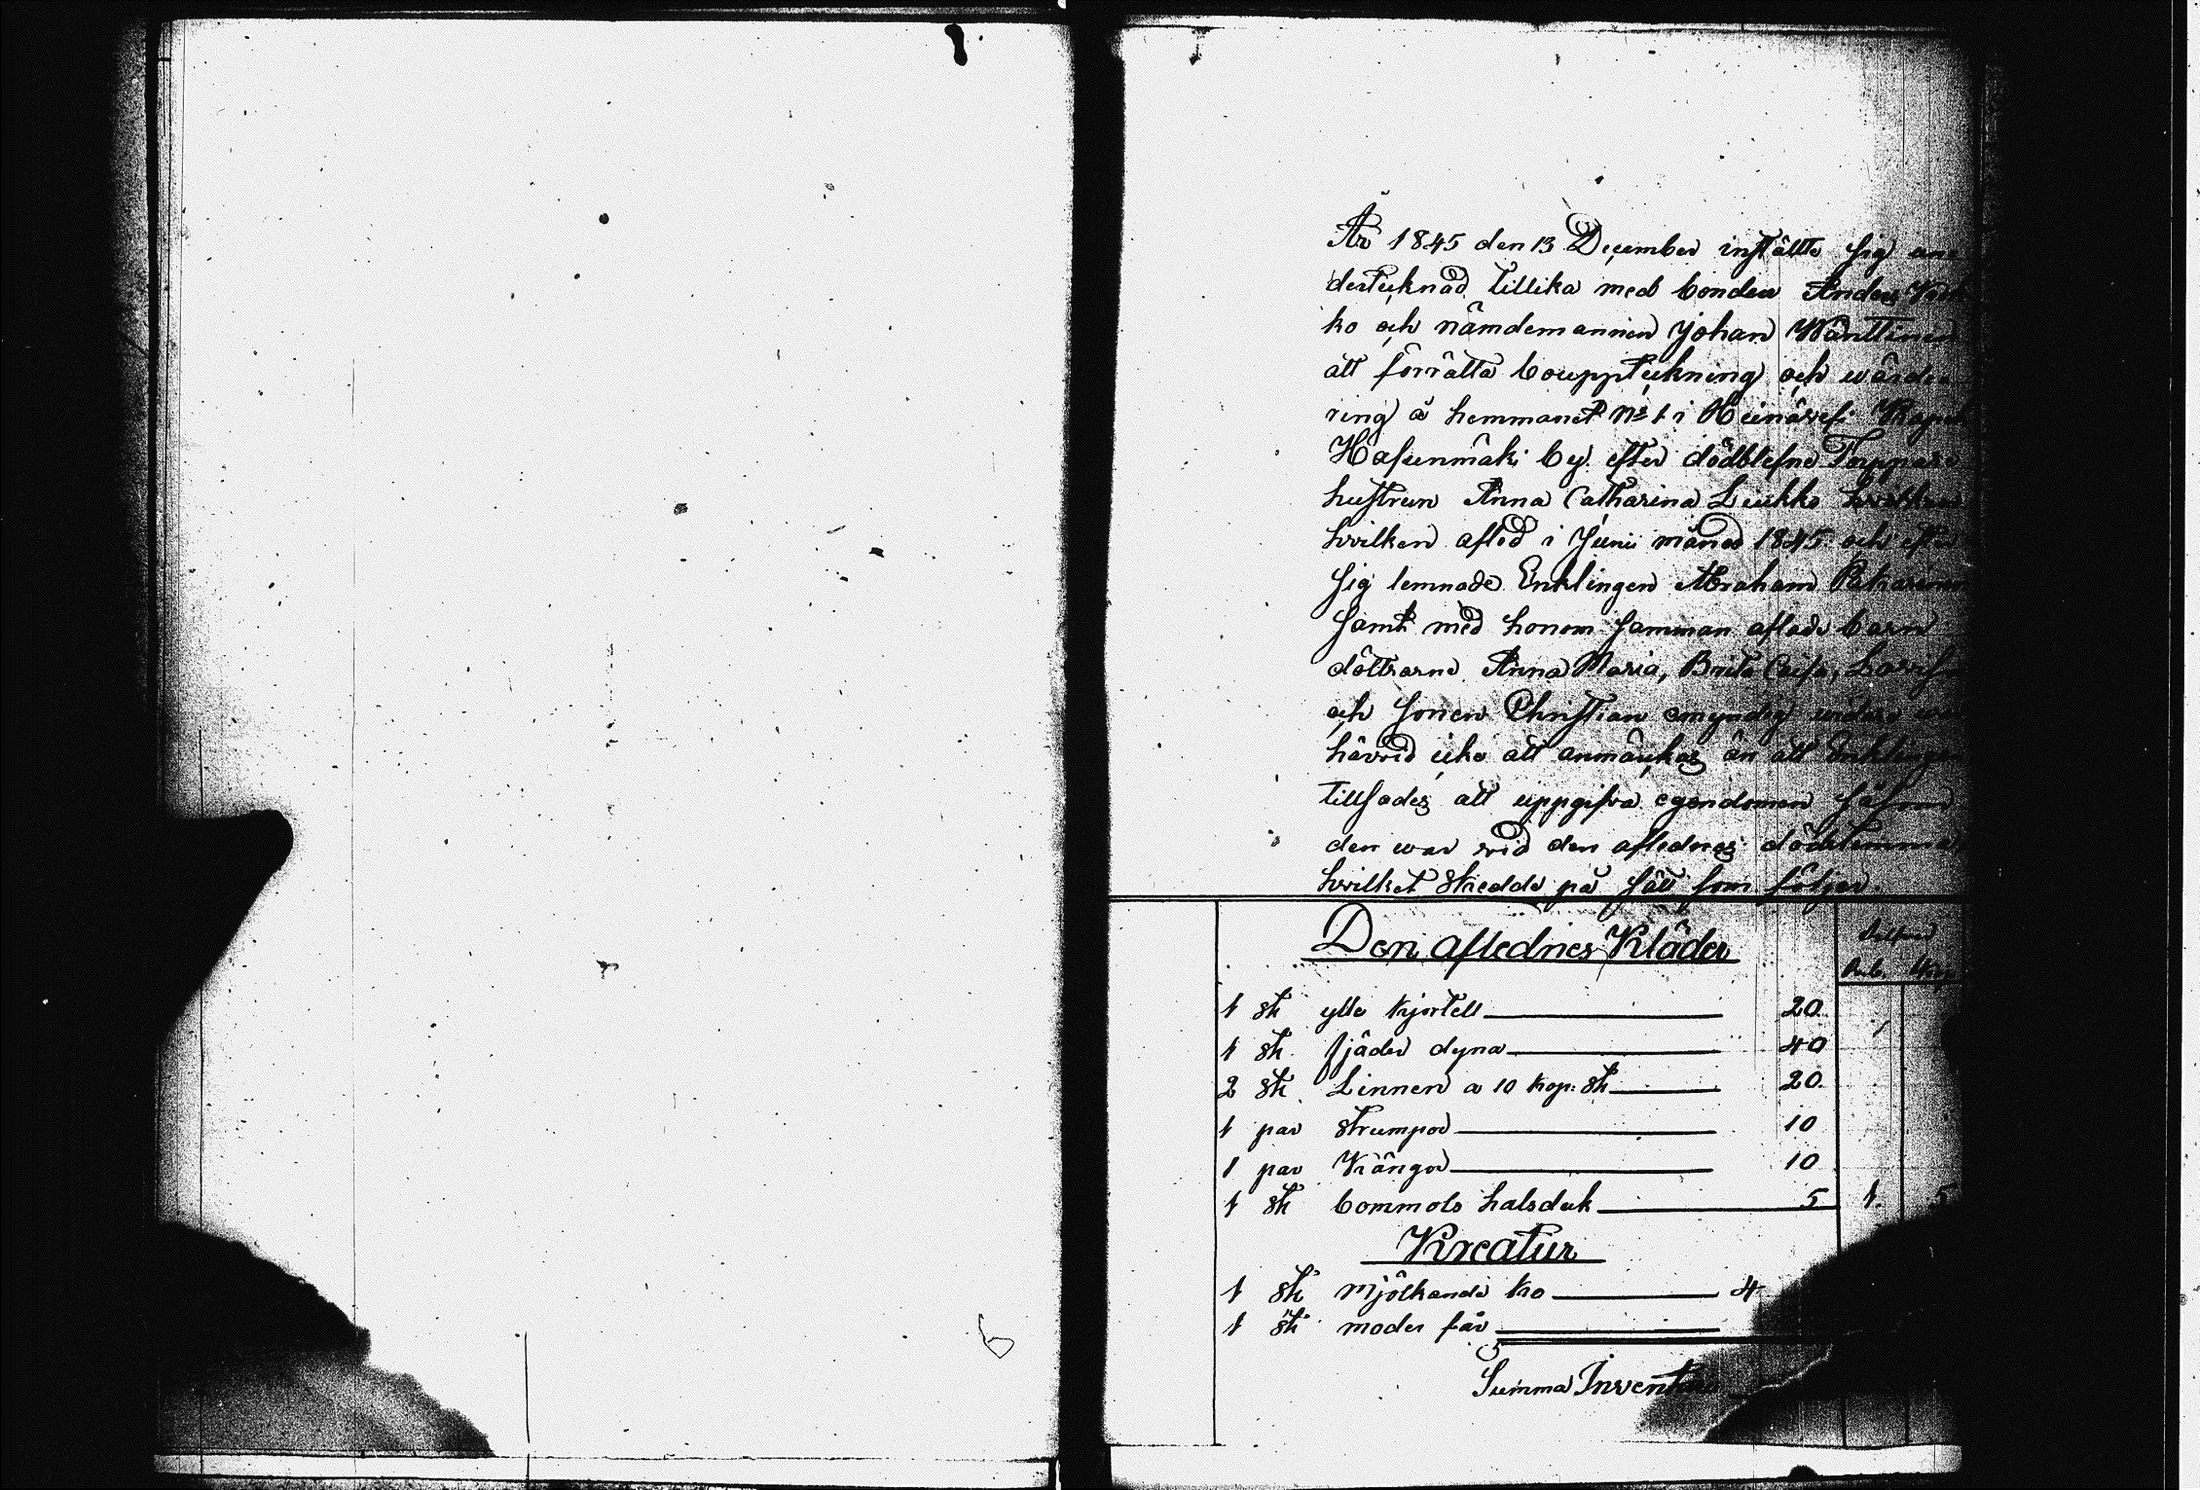 År 1845 den 13 December instälte sig un
dertecknad tillika med bonden Anders
ko och nämdemannen Johan Wänttinen
att förrätta bouppteckning och wärde
ring å hemmanet No 1 i Heinäwesi
Hasunmäki by efter dödblefne Torppare
hustrun Anna Catharina Liukko
hvilken afled i Junii månad 1845 och efter
sig lemnade Enklingen Abraham
samt med honom samman aflade barn
döttrarne Anna Maria, Brita Caisa,
och sonen Christian omyndig
härvid icke att anmärkas än att Enklingen
tillsades att uppgifva egendomen såsom
den war vid den aflednes dödstimma
hvilket skedde på sätt som följer.
Den aflednes Kläder
Rub. Kop
1 st ylle kjortell 20
1 st fjäder dyna 40
2 st Linnen a 10 kop: st 20
1 par strumpor 10
1 par Kängor 10
1 st bommols halsduk 5 1. 5
Kreatur
1 st mjölkande ko 4
1 st moder får
Summa Inventarii
6